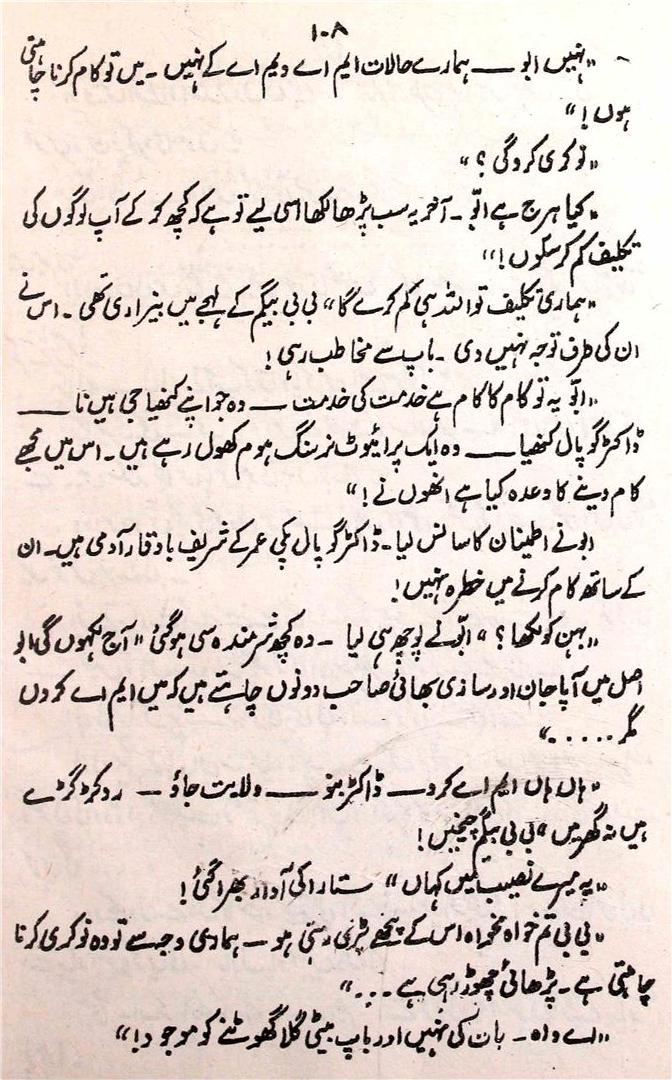 ۱۰۸
"نہیں ابو ــــ ہمارے حالات ایم اے ویم اے کے نہیں ۔ میں تو کام کرنا چاہتی
ہوں!"
"نوکری کرو گی؟"
"کیا ہرج ہے ابّو ۔ آخر یہ سب پڑھا لکھا اسی لیے تو ہے کہ کچھ کر کے آپ لوگوں کی
تکلیف کم کر سکوں!"
"ہماری تکلیف تو اللہ ہی کم کرے گا" بی بی بیگم کے لہجے میں بیزاری تھی ۔ اس نے
ان کی طرف توجہ نہیں دی ۔ باپ سے مخاطب رہی!
"ابّو یہ تو کام کا کام ہے خدمت کی خدمت ــــ وہ جو اپنے کنھیا جی ہیں نا ــــ
ڈاکٹر گوپال کنھیا ــــ وہ ایک پرائیوٹ نرسنگ ہوم کھول رہے ہیں ۔ اس میں مجھے
کام دینے کا وعدہ کیا ہے انھوں نے!"
ابو نے اطینان کا سانس لیا ۔ ڈاکٹر گوپال پکی عمر کے شریف باوقار آدمی ہیں ۔ ان
کے ساتھ کام کرنے میں خطرہ نہیں!
"بہن کو لکھا؟" ابّو نے پوچھ ہی لیا ۔ وہ کچھ شرمندہ سی ہو گئی "آج لکھوں گی ابو
اصل میں آپا جان اور سازی بھائی صاحب دونوں چاہتے ہیں کہ میں ایم اے کر لوں
مگر ....."
"ہاں ہاں ایم اے کرو ــــ ڈاکٹر بنو ــــ ولایت جاؤ ــــ روکڑ گڑے
ہیں نہ گھر میں" بی بی بیگم چیخیں!
"یہ میرے نصیب میں کہاں" ستارا کی آواز بھرا گئی!
"بی بی تم خواہ مخواہ اس کے پیچھے پڑی رہتی ہو ــ ہماری وجہ سے تو وہ نوکری کرنا
چاہتی ہے ۔ پڑھائی چھوڑ رہی ہے ..."
"اے واہ ۔ بات کی نہیں اور باپ بیٹی گلا گھوٹنے کو موجود!"